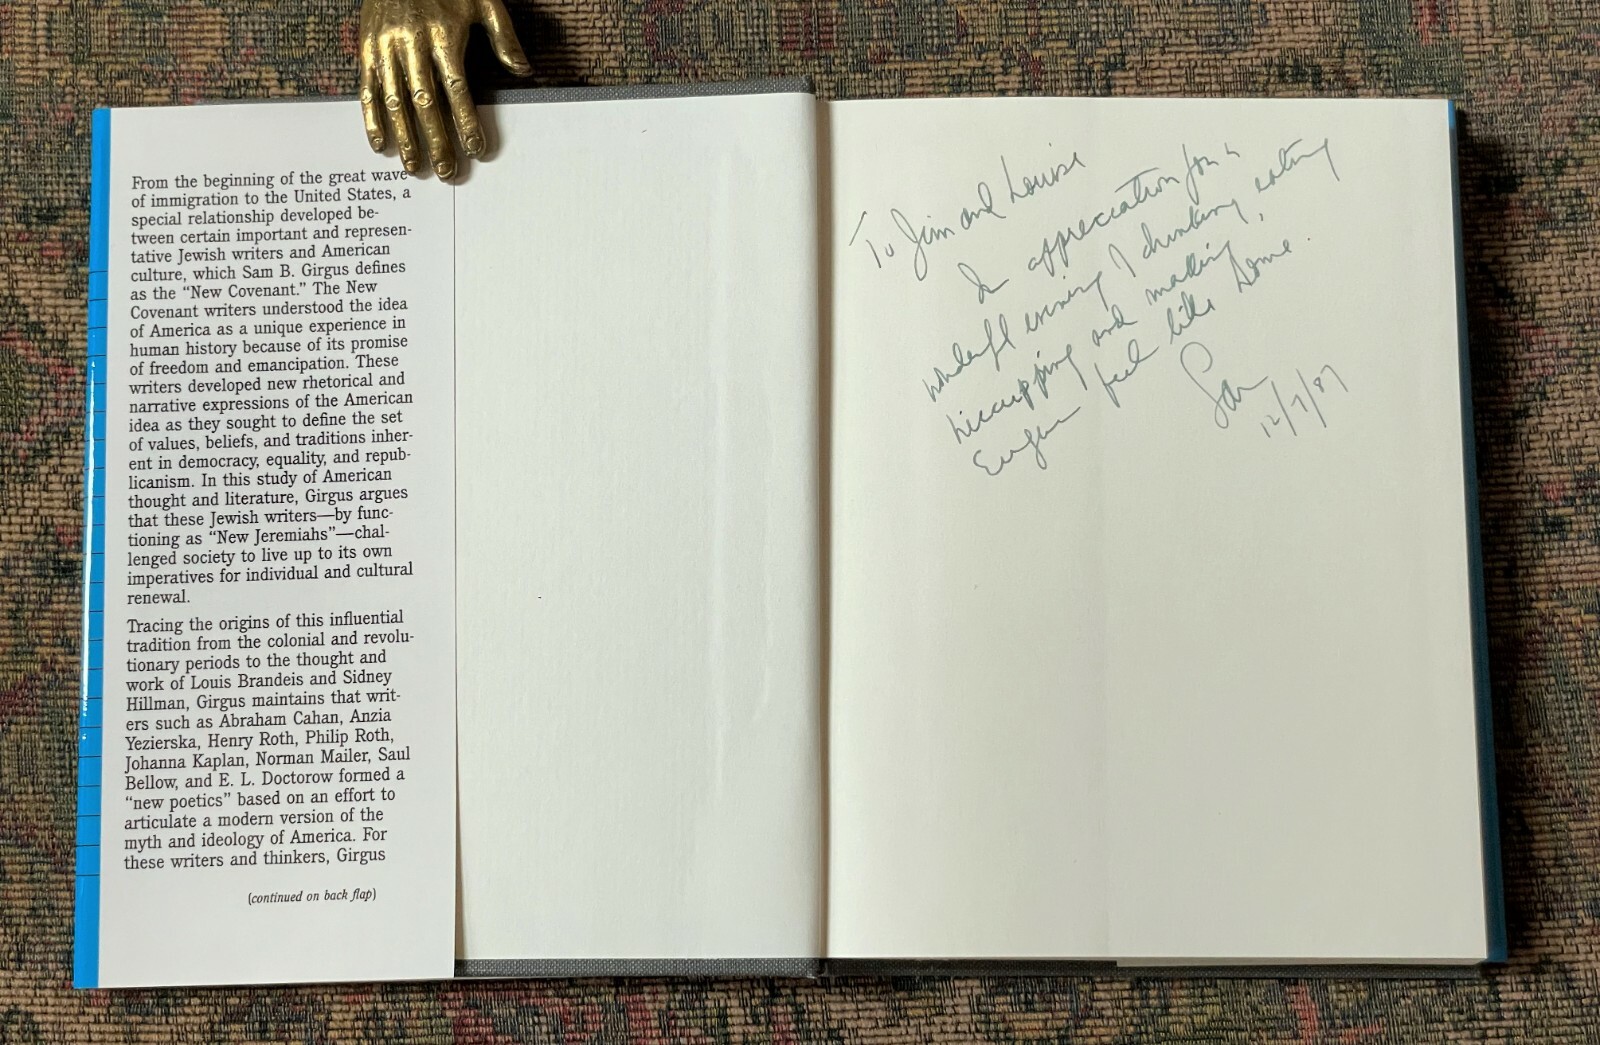 From the beginning of the great wave
of immigration to the United States, a
special relationship developed be-
tween certain important and represen-
tative Jewish writers and American
culture, which Sam B. Girgus defines
as the “New Covenant.” The New
Covenant writers understood the idea
of America as a unique experience in
human history because of its promise
of freedom and emancipation. These
writers developed new rhetorical and
narrative expressions of the American
idea as they sought to define the set
of values, beliefs, and traditions inher-
ent in democracy, equality, and repub-
licanism. In this study of American
thought and literature, Girgus argues
that these Jewish writers—by func-
tioning as “New Jeremiahs”—chal-
lenged society to live up to its own
imperatives for individual and cultural
renewal.
Tracing the origins of this influential
tradition from the colonial and revolu-
tionary periods to the thought and
work of Louis Brandeis and Sidney
Hillman, Girgus maintains that writ-
ers such as Abraham Cahan, Anzia
Yezierska, Henry Roth, Philip Roth,
Johanna Kaplan, Norman Mailer, Saul
Bellow, and E. L. Doctorow formed a
“new poetics” based on an effort to
articulate a modern version of the
myth and ideology of America. For
these writers and thinkers, Girgus
(continued on back flap)
To Jim and Louise
In appreciation for a
wonderful evening of drinking, eating,
hiccupping and making
Eugene feel like home.
Sam
12/7/87